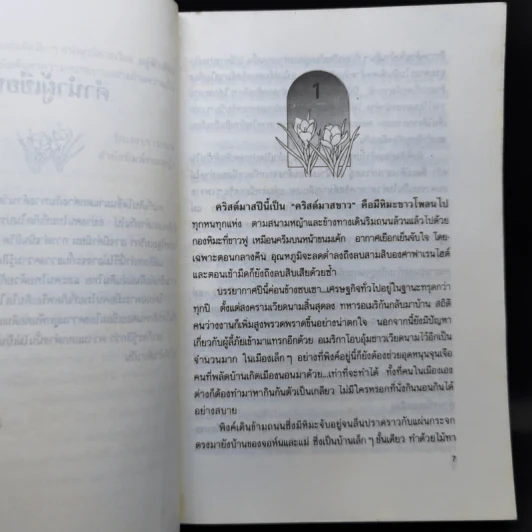 1
คริสต์มาสปีนี้เป็น "คริสต์มาสขาว" คือมีหิมะขาวโพลนไป
ทุกหนทุกแห่ง ตามสนามหญ้าและข้างทางเดินริมถนนล้วนแล้วไปด้วย
กองหิมะที่ขาวฟู เหมือนครีมบนหน้าขนมเค้ก อากาศเยือกเย็นจับใจ โดย
เฉพาะตอนกลางคืน อุณหภูมิจะลดต่ำลงถึงลบสามสิบองศาฟาเรนไฮต์
และตอนเช้ามืดก็ยังถึงลบสิบเสียด้วยซ้ำ
บรรยากาศปีนี้ค่อนข้างซบเซา...เศรษฐกิจทั่วไปอยู่ในฐานะทรุดกว่า
ทุกปี ตั้งแต่สงครามเวียดนามสิ้นสุดลง ทหารอเมริกันกลับมาบ้าน สถิติ
คนว่างงานก็เพิ่มสูงพรวดพราดขึ้นอย่างน่าตกใจ นอกจากนี้ยังมีปัญหา
เกี่ยวกับผู้ลี้ภัยเข้ามาแทรกอีกด้วย อเมริกาโอบอุ้มชาวเวียดนามไว้อีกเป็น
จำนวนมาก ในเมืองเล็กๆ อย่างที่พิงค์อยู่นี้ก็ยังต้องช่วยอุดหนุนจุนเจือ
คนที่พลัดบ้านเกิดเมืองนอนมาด้วย...เท่าที่จะทำได้ ทั้งที่คนในเมืองเอง
ต่างก็ต้องทำมาหากินกันตัวเป็นเกลียว ไม่มีใครหรอกที่นั่งกินนอนกินได้
อย่างสบาย
พิงค์เดินข้ามถนนซึ่งมีหิมะจับอยู่จนลื่นปราดราวกับแผ่นกระจก
ตรงมายังบ้านของจอห์นและแม่ ซึ่งเป็นบ้านเล็กๆ ชั้นเดียว ทำด้วยไม้ทา
7